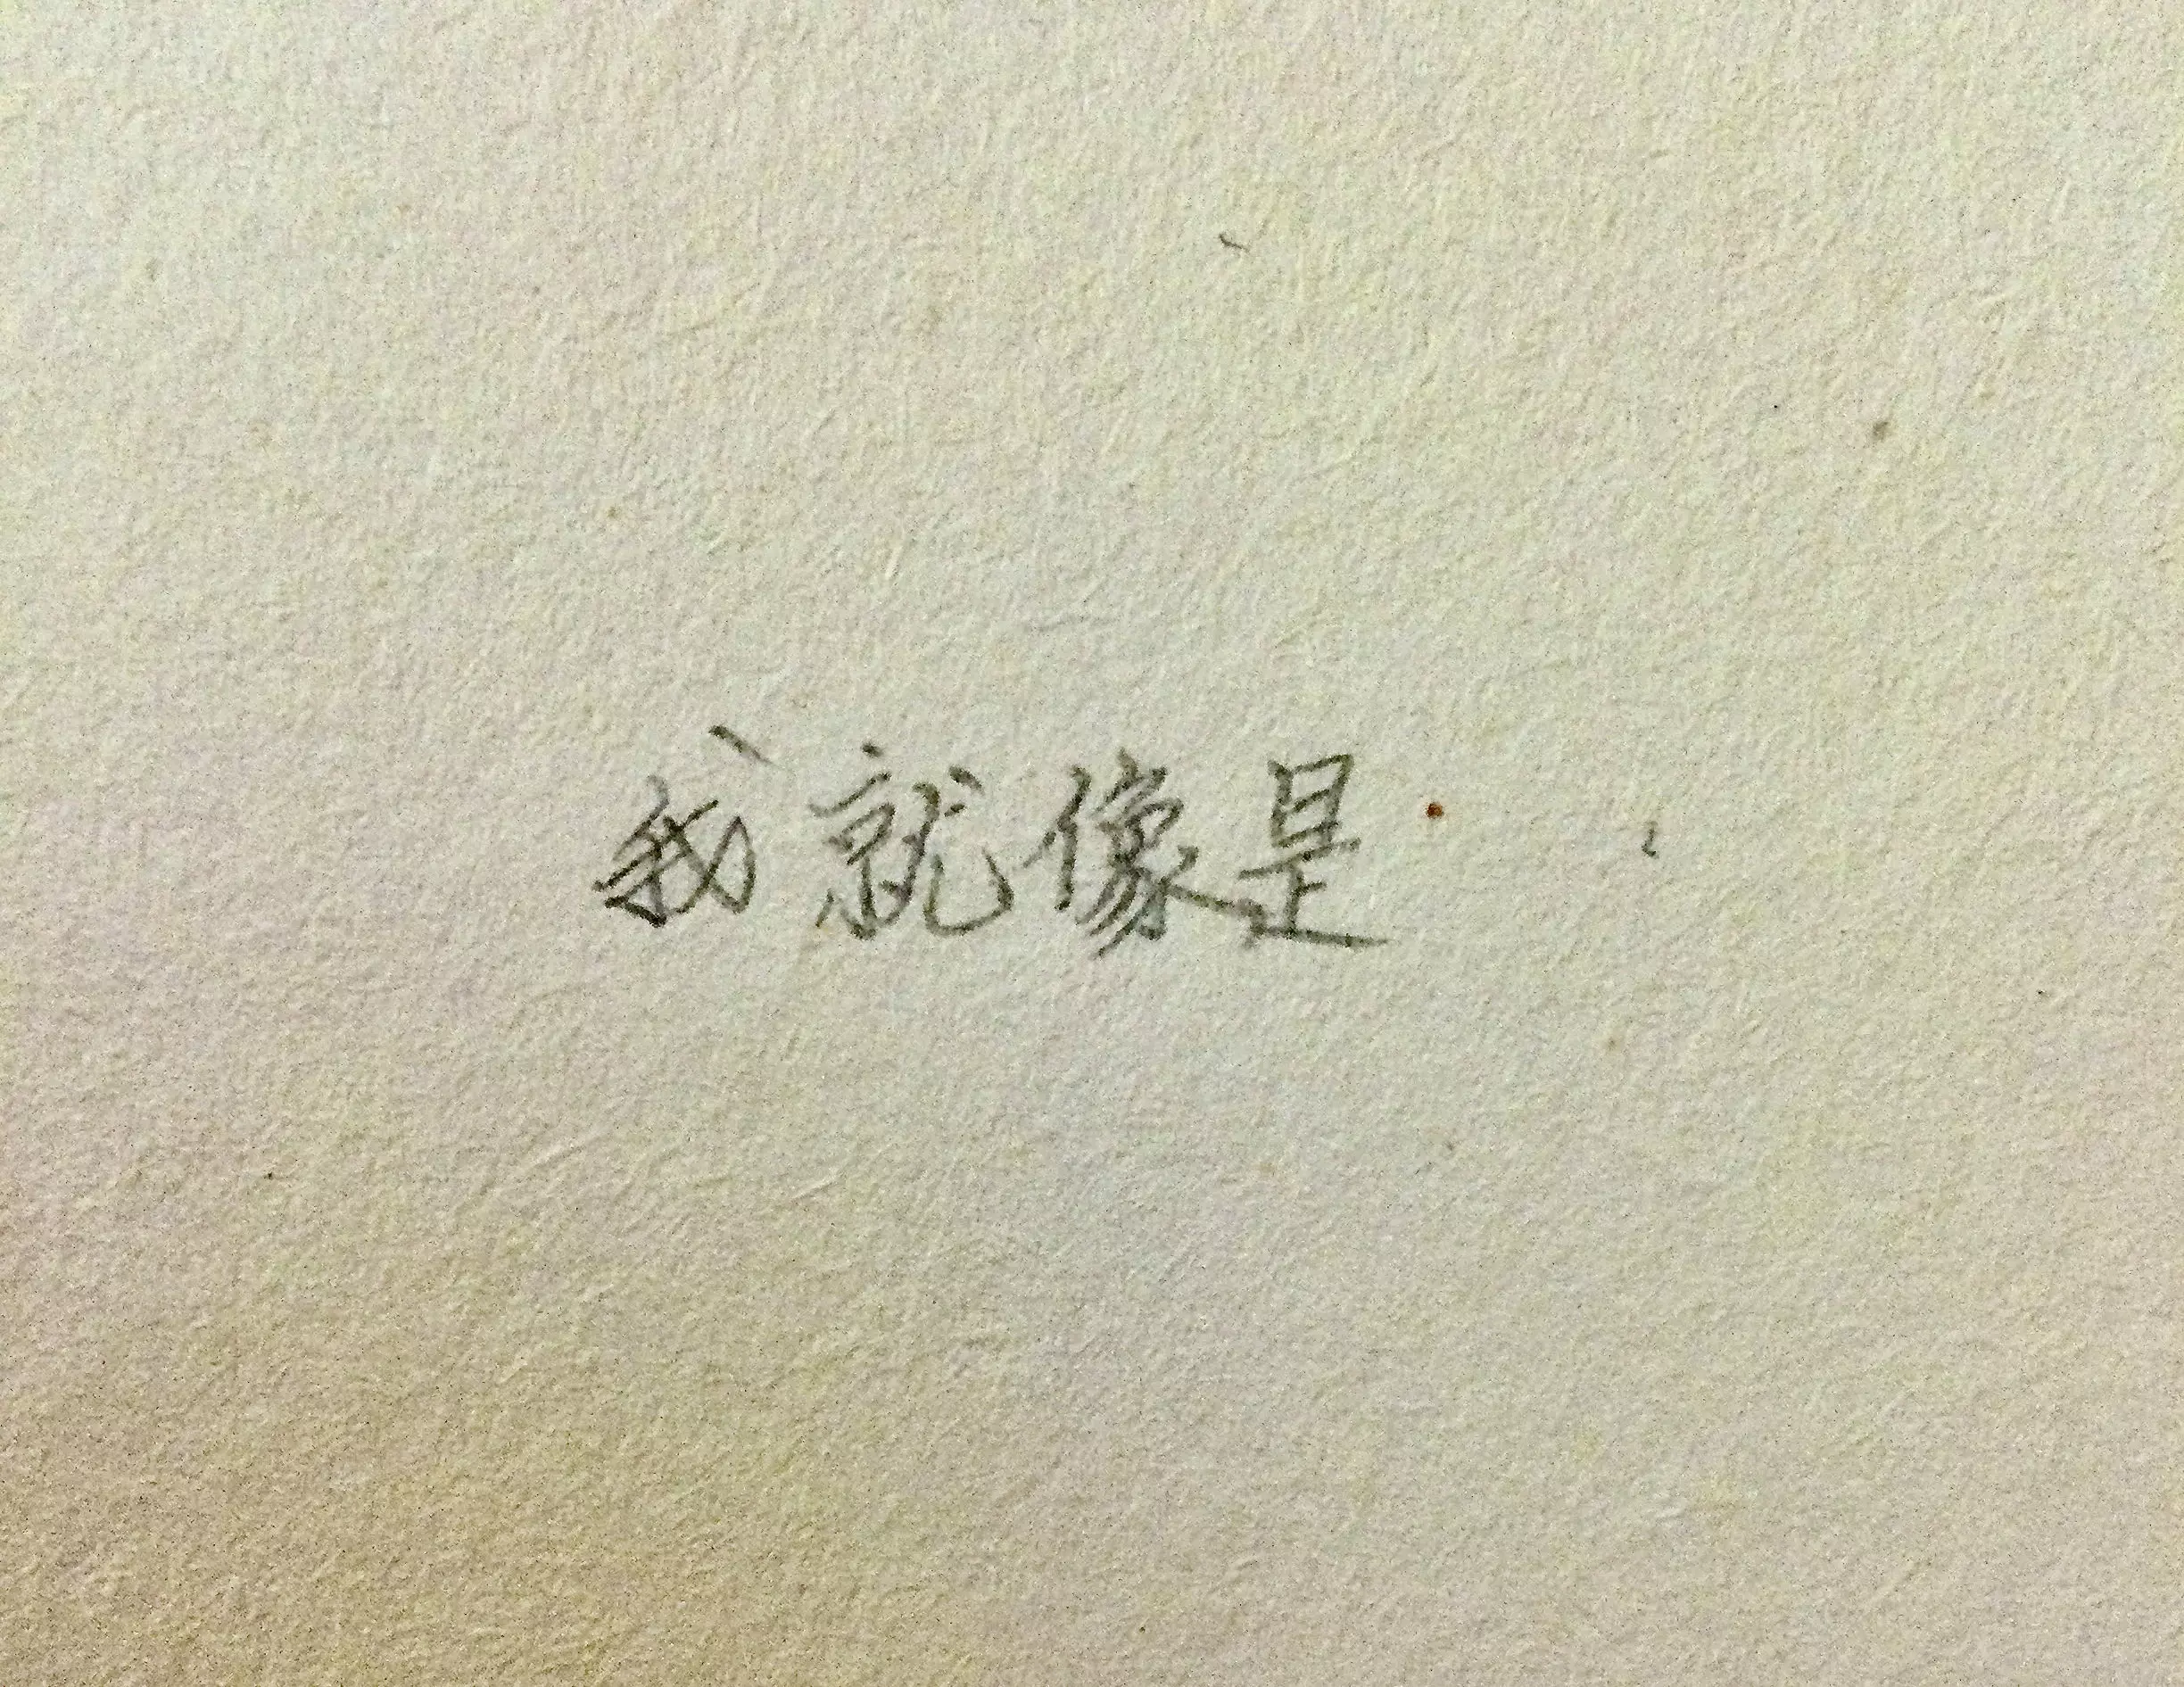 我就像是